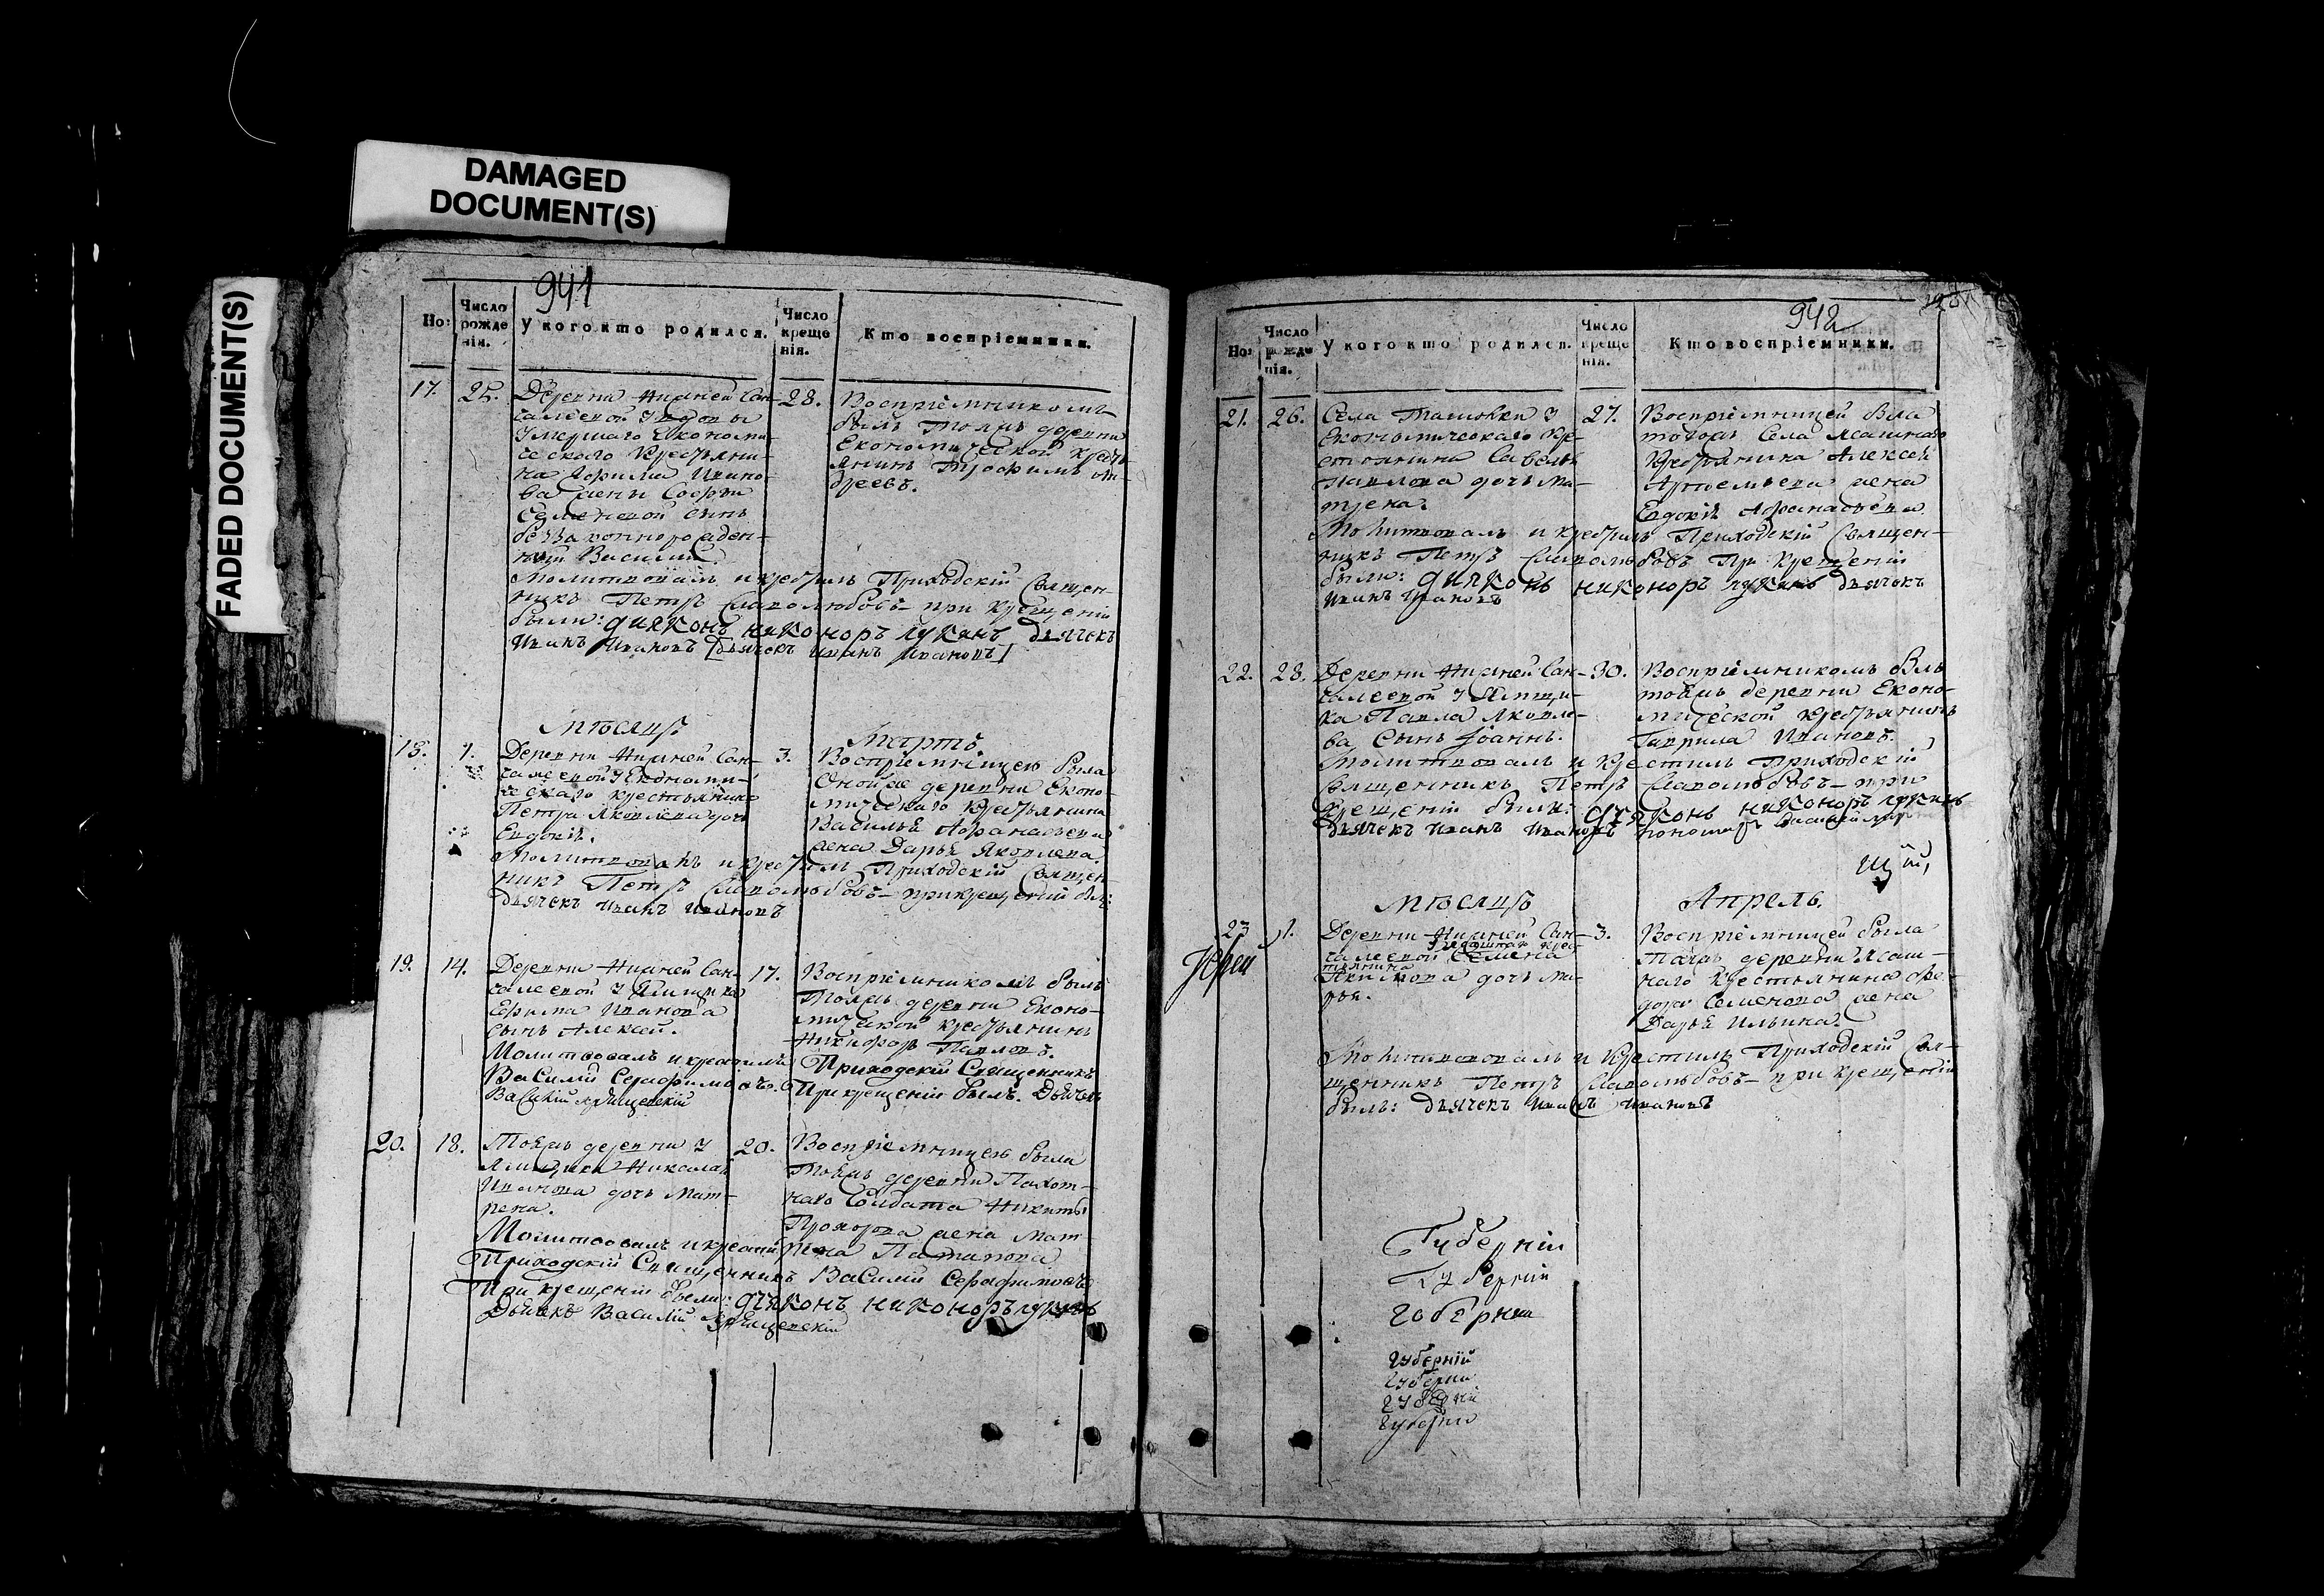 DAMAGED
DOCUMENT(S)
FADED DOCUMENT(S)
941
Но: Число рожденія. У кого кто родился. Число крещенія. Кто воспріемники.
17. 25. Деревни Нижней Сан- 28.
чалеевой У вдовы
Умершаго Економи-
ческаго Крестьяни-
на Ефима Ивано-
ва жены Софьи
Семеновой сынъ
беззаконнорожден-
ный Василий.
Воспріемникомъ
былъ Тойжъ деревни
Економической Кресть-
янинъ Трофимъ Ан-
дреевъ.
Молитвовалъ и крестилъ Приходскій Священ-
никъ Петръ Славолюбовъ при крещеніи
были: диаконъ никоноръ лукинъ дьячекъ
Иванъ Ивановъ [дьячекъ Иванъ Ивановъ]
Мѣсяцъ Мартъ.
18. 1. Деревни Нижней Сан- 3.
чалеевой У Економи-
ческаго крестьянина
Петра Яковлева дочь
Евдокія.
Воспріемницею была
Оной же деревни Еконо-
мическаго Крестьянина
Василья Афанасьева
жена Дарья Яковлева.
Молитвовалъ и крестил Приходскій Священ
никъ Петръ Славолюбовъ при крещеніи былъ:
дьячекъ Иванъ Ивановъ
19. 14. Деревни Нижней Сан- 17.
чалеевой У Ямщика
Ефима Иванова
сынъ Алексей.
Воспріемникомъ былъ
Тойжъ деревни Еконо-
мической крестьянинъ
Никифоръ Павловъ.
Молитвовалъ и крестилъ Приходскій Священникъ
Василий Серафимовъ. При крещеніи былъ. Дьячекъ
Василій
20. 18. Тойжъ деревни У 20.
Ямщика Николая
Иванова дочь Мат-
рена.
Воспріемницею была
Тойжъ деревни Пахот-
наго Солдата Никиты
Прохорова жена Мат
рена
Молитвовалъ и крестил
Приходскій Священникъ Василий Серафимовъ
При крещеніи были: дьяконъ никоноръ лукинъ
Дьячекъ Василій
942
Но: Число рожденія. У кого кто родился. Число крещенія. Кто воспріемники.
21. 26. Села У 27.
Економическаго Кре-
стьянина Савелья
Павлова дочь Ма-
трена.
Воспріемницей была
тогожъ Села Ясашнаго
Крестьянина Алексея
Артемьева жена
Евдокія Афанасьева
Молитвовалъ и крестилъ Приходскій Священ-
никъ Петръ Славолюбовъ При Крещеніи
были: диаконъ никоноръ лукинъ дьячекъ
Иванъ Ивановъ
22. 28. Деревни Нижней Сан- 30.
чалеевой У Ямщи-
ка Павла Яковле-
ва Сынъ Іоаннъ.
Воспріемникомъ Былъ
тойжъ деревни Еконо-
мической Крестьянинъ
Гаврила Ивановъ.
Молитвовалъ и крестилъ Приходскій
Священникъ Петръ Славолюбовъ при
крещеніи были: дьяконъ никоноръ лукинъ
дьячекъ Иванъ Ивановъ пономарь Василей
Мѣсяцъ Апрель.
23 1. Деревни Нижней Сан- 3.
чалеевой Семена
Акимова дочь Ма-
рья.
Іерей
Воспріемницей была
таяжъ деревни Ясаш-
наго Крестьянина Фе-
дора Семенова жена
Дарья Ильина.
Молитвовалъ и Крестилъ Приходскій Свя-
щенникъ Петръ Славолюбовъ при крещеніи
былъ: дьячекъ Иванъ Ивановъ
Губерніи
Губерніи
губерніи
губерніи
губерніи
губерніи